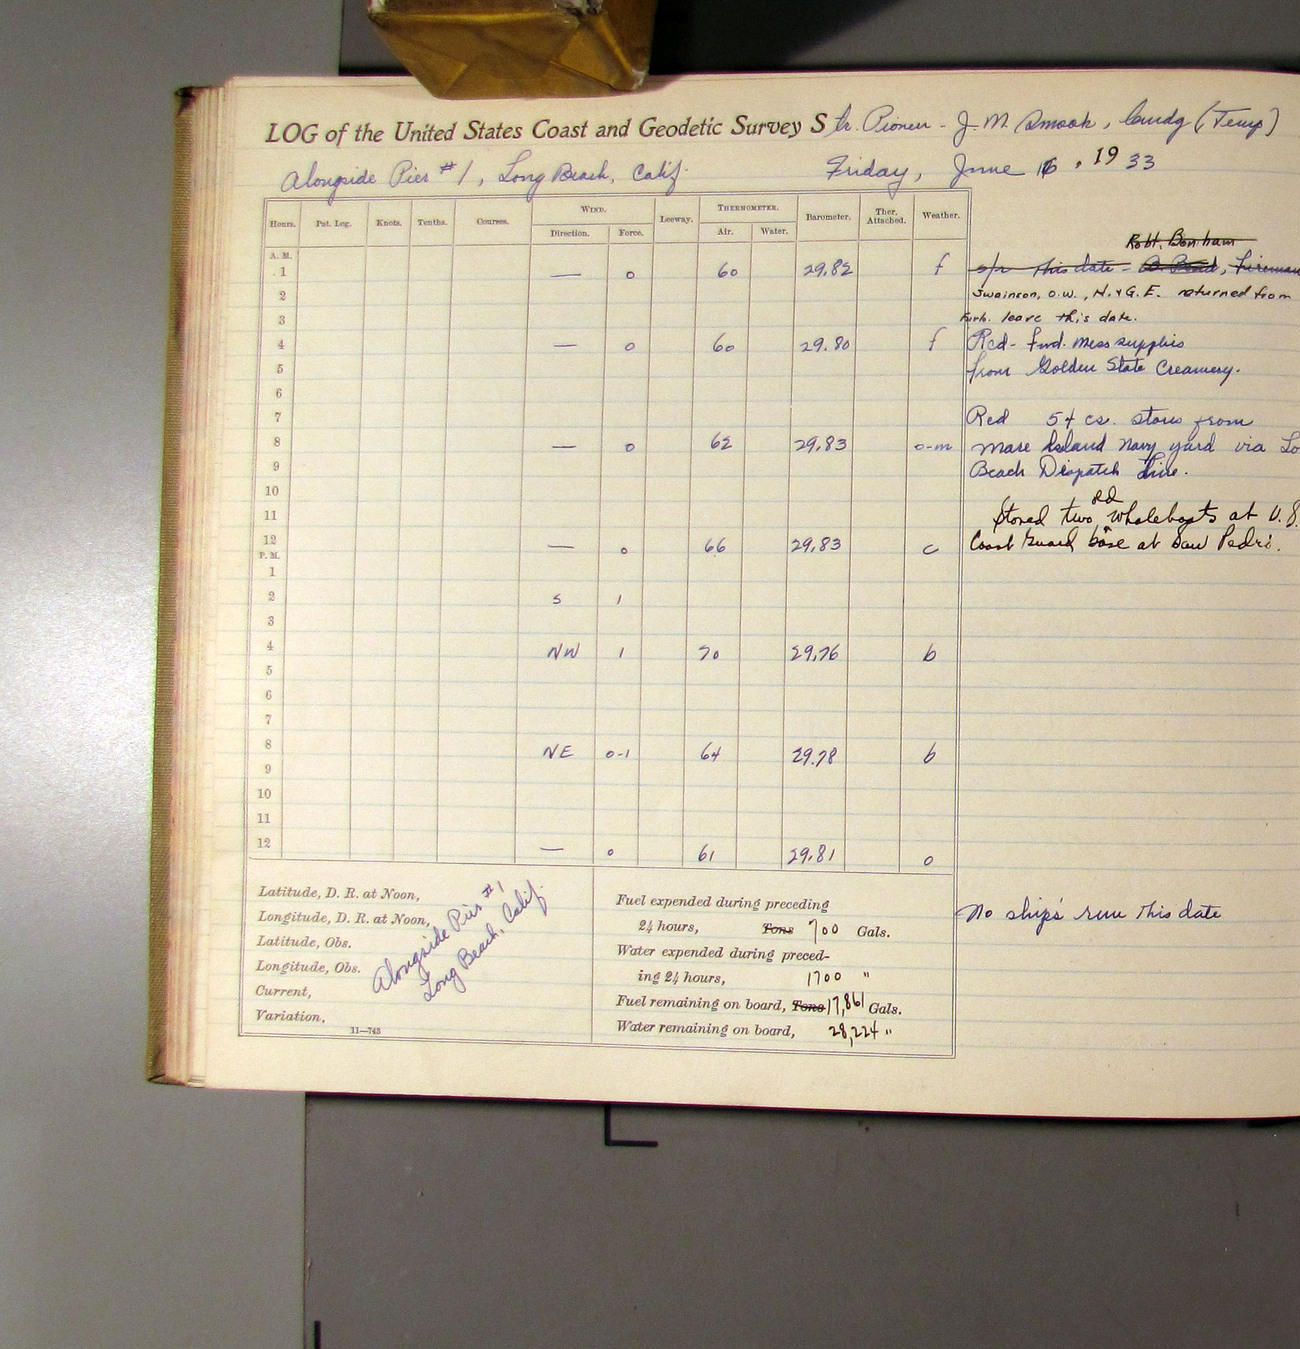 LOG of the United States Coast and Geodetic Survey Str. Pioneer - J. M. Smook, Comdg (Temp)
Alongside Pier #1, Long Beach, Calif. Friday, June 16, 1933
Hours. Pat. Log. Knots. Tenths. Courses. WIND. Leeway. THERMOMETER. Barometer. Ther. Attached. Weather.
Direction. Force. Air. Water.
Robt. Bonham
A. M.
1 — 0 60 29.82 f s/r this date - Fireman
2 Swainson, O.W., H. & G. E. returned from
3 Furl. leave this date.
4 — 0 60 29.80 f Rcd- Fwd. mess supplies
5 from Golden State Creamery.
6
7 Rcd 54 cs. stores from
8 — 0 62 29.83 o-m Mare Island Navy yard via Lo
9 Beach Dispatch Line.
10
11 Stored two whaleboats at U.S.
12 — 0 66 29.83 c Coast Guard base at San Pedro.
P. M.
1
2 S 1
3
4 NW 1 70 29.76 b
5
6
7
8 NE 0-1 64 29.78 b
9
10
11
12 — 0 61 29.81 o
Latitude, D. R. at Noon,
Longitude, D. R. at Noon,
Latitude, Obs.
Longitude, Obs.
Current,
Variation,
11—743
Alongside Pier #1
Long Beach, Calif.
Fuel expended during preceding
24 hours, Tons 700 Gals.
Water expended during preced-
ing 24 hours, 1700 "
Fuel remaining on board, Tons 17,861 Gals.
Water remaining on board, 28,224 "
No ship's run this date